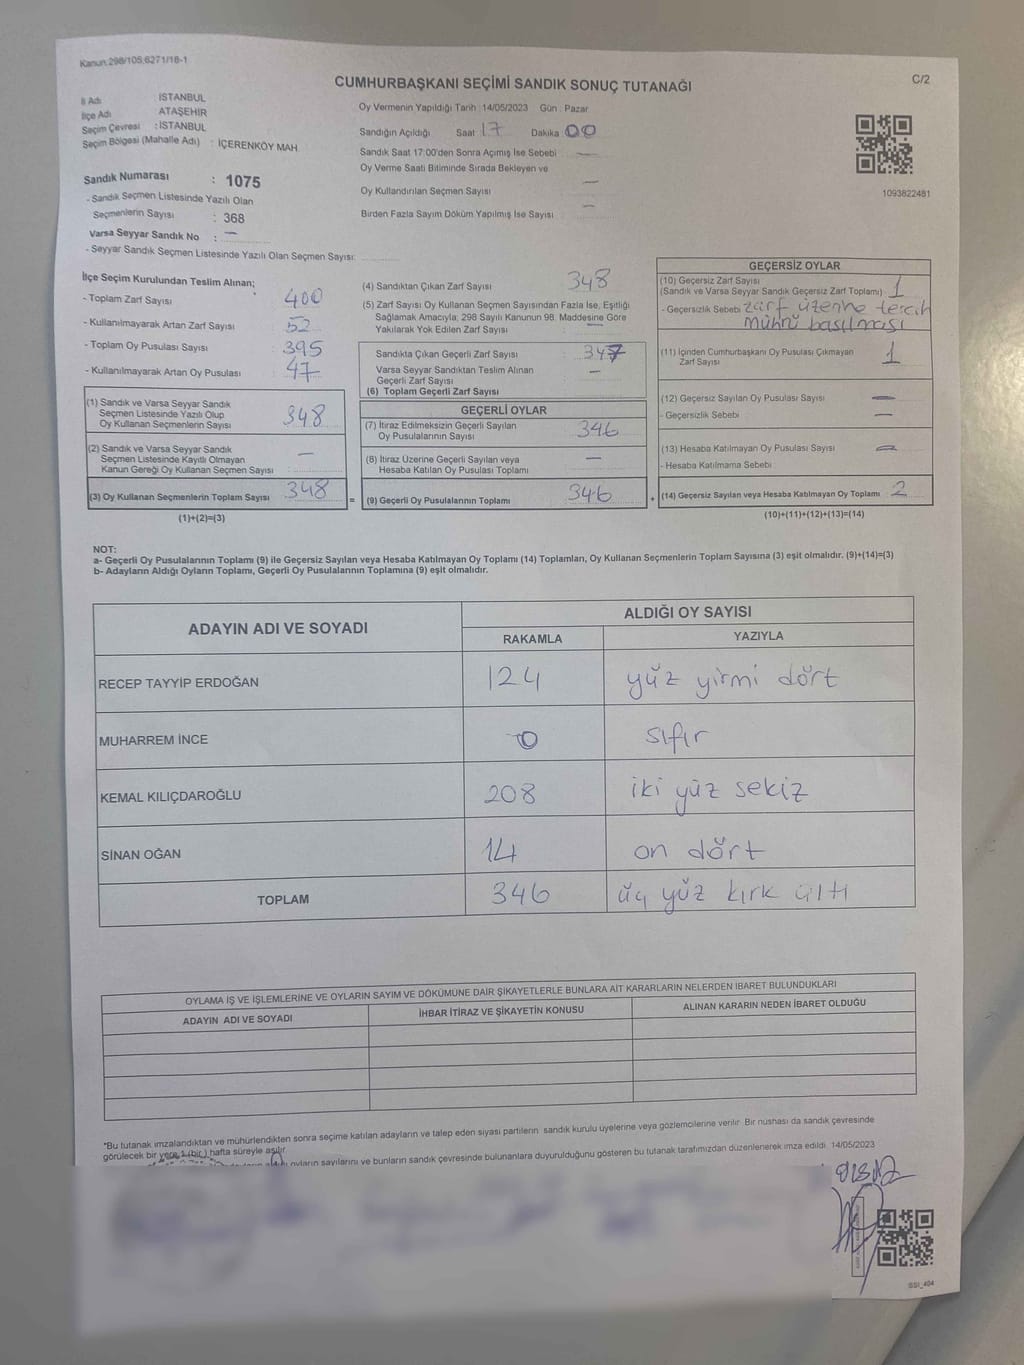 Kanun:298/105,6271/18-1
CUMHURBAŞKANI SEÇİMİ SANDIK SONUÇ TUTANAĞI
C/2
İl Adı : İSTANBUL
İlçe Adı : ATAŞEHİR
Seçim Çevresi : İSTANBUL
Seçim Bölgesi (Mahalle Adı) : İÇERENKÖY MAH
Sandık Numarası : 1075
- Sandık Seçmen Listesinde Yazılı Olan
Seçmenlerin Sayısı : 368
Varsa Seyyar Sandık No : —
- Seyyar Sandık Seçmen Listesinde Yazılı Olan Seçmen Sayısı:
Oy Vermenin Yapıldığı Tarih : 14/05/2023 Gün : Pazar
Sandığın Açıldığı Saat 17 Dakika 00
Sandık Saat 17:00'den Sonra Açımış İse Sebebi —
Oy Verme Saati Bitiminde Sırada Bekleyen ve
Oy Kullandırılan Seçmen Sayısı —
Birden Fazla Sayım Döküm Yapılmış İse Sayısı —
1093822481
İlçe Seçim Kurulundan Teslim Alınan;
- Toplam Zarf Sayısı : 400
- Kullanılmayarak Artan Zarf Sayısı : 52
- Toplam Oy Pusulası Sayısı : 395
- Kullanılmayarak Artan Oy Pusulası : 47
(1) Sandık ve Varsa Seyyar Sandık
Seçmen Listesinde Yazılı Olup
Oy Kullanan Seçmenlerin Sayısı : 348
(2) Sandık ve Varsa Seyyar Sandık
Seçmen Listesinde Kayıtlı Olmayan
Kanun Gereği Oy Kullanan Seçmen Sayısı : —
(3) Oy Kullanan Seçmenlerin Toplam Sayısı : 348
(1)+(2)=(3)
(4) Sandıktan Çıkan Zarf Sayısı : 348
(5) Zarf Sayısı Oy Kullanan Seçmen Sayısından Fazla İse, Eşitliği
Sağlamak Amacıyla; 298 Sayılı Kanunun 98. Maddesine Göre
Yakılarak Yok Edilen Zarf Sayısı : —
Sandıkta Çıkan Geçerli Zarf Sayısı : 347
Varsa Seyyar Sandıktan Teslim Alınan
Geçerli Zarf Sayısı : —
(6) Toplam Geçerli Zarf Sayısı
GEÇERLİ OYLAR
(7) İtiraz Edilmeksizin Geçerli Sayılan
Oy Pusulalarının Sayısı : 346
(8) İtiraz Üzerine Geçerli Sayılan veya
Hesaba Katılan Oy Pusulası Toplamı : —
= (9) Geçerli Oy Pusulalarının Toplamı : 346
GEÇERSİZ OYLAR
(10) Geçersiz Zarf Sayısı
(Sandık ve Varsa Seyyar Sandık Geçersiz Zarf Toplamı) : 1
- Geçersizlik Sebebi : zarf üzerine tercih
mührü basılması
(11) İçinden Cumhurbaşkanı Oy Pusulası Çıkmayan
Zarf Sayısı : 1
(12) Geçersiz Sayılan Oy Pusulası Sayısı : —
- Geçersizlik Sebebi : —
(13) Hesaba Katılmayan Oy Pusulası Sayısı : —
- Hesaba Katılmama Sebebi
+ (14) Geçersiz Sayılan veya Hesaba Katılmayan Oy Toplamı : 2
(10)+(11)+(12)+(13)=(14)
NOT:
a- Geçerli Oy Pusulalarının Toplamı (9) ile Geçersiz Sayılan veya Hesaba Katılmayan Oy Toplamı (14) Toplamları, Oy Kullanan Seçmenlerin Toplam Sayısına (3) eşit olmalıdır. (9)+(14)=(3)
b- Adayların Aldığı Oyların Toplamı, Geçerli Oy Pusulalarının Toplamına (9) eşit olmalıdır.
ADAYIN ADI VE SOYADI ALDIĞI OY SAYISI
RAKAMLA YAZIYLA
RECEP TAYYİP ERDOĞAN 124 yüz yirmi dört
MUHARREM İNCE 0 sıfır
KEMAL KILIÇDAROĞLU 208 iki yüz sekiz
SİNAN OĞAN 14 on dört
TOPLAM 346 üç yüz kırk altı
OYLAMA İŞ VE İŞLEMLERİNE VE OYLARIN SAYIM VE DÖKÜMÜNE DAİR ŞİKAYETLERLE BUNLARA AİT KARARLARIN NELERDEN İBARET BULUNDUKLARI
ADAYIN ADI VE SOYADI İHBAR İTİRAZ VE ŞİKAYETİN KONUSU ALINAN KARARIN NEDEN İBARET OLDUĞU
*Bu tutanak imzalandıktan ve mühürlendikten sonra seçime katılan adayların ve talep eden siyasi partilerin sandık kurulu üyelerine veya gözlemcilerine verilir. Bir nüshası da sandık çevresinde
görülecek bir yere 1 (bir) hafta süreyle asılır.
oyların sayılarını ve bunların sandık çevresinde bulunanlara duyurulduğunu gösteren bu tutanak tarafımızdan düzenlenerek imza edildi. 14/05/2023
SSI_404